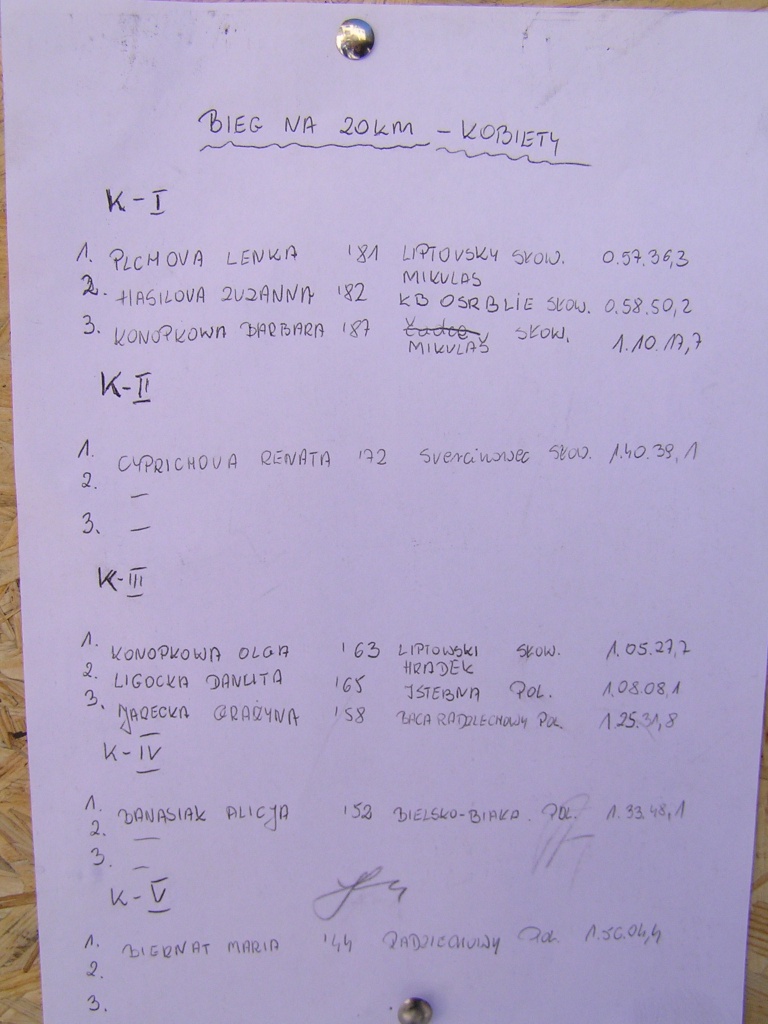 BIEG NA 20KM - KOBIETY
K-I
1. PLCHOVA LENKA '81 LIPTOVSKY MIKULAS SŁOW. 0.57.36,3
2. HASILOVA ZUZANNA '82 KB OSRBLIE SŁOW. 0.58.50,2
3. KONOPKOWA BARBARA '87 MIKULAS SŁOW. 1.10.17,7
K-II
1. CYPRICHOVA RENATA '72 Svercinowec SŁOW. 1.40.39,1
2. —
3. —
K-III
1. KONOPKOWA OLGA '63 LIPTOWSKI HRADEK SŁOW. 1.05.27,7
2. LIGOCKA DANUTA '65 ISTEBNA POL. 1.08.08,1
3. JARECKA GRAŻYNA '58 BACA RADZIECHOWY POL 1.25.31,8
K-IV
1. BANASIAK ALICJA '52 BIELSKO-BIAŁA. POL. 1.33.48,1
2. —
3. —
K-V
1. BIERNAT MARIA '44 RADZIECHOWY POL. 1.56.04,4
2.
3.